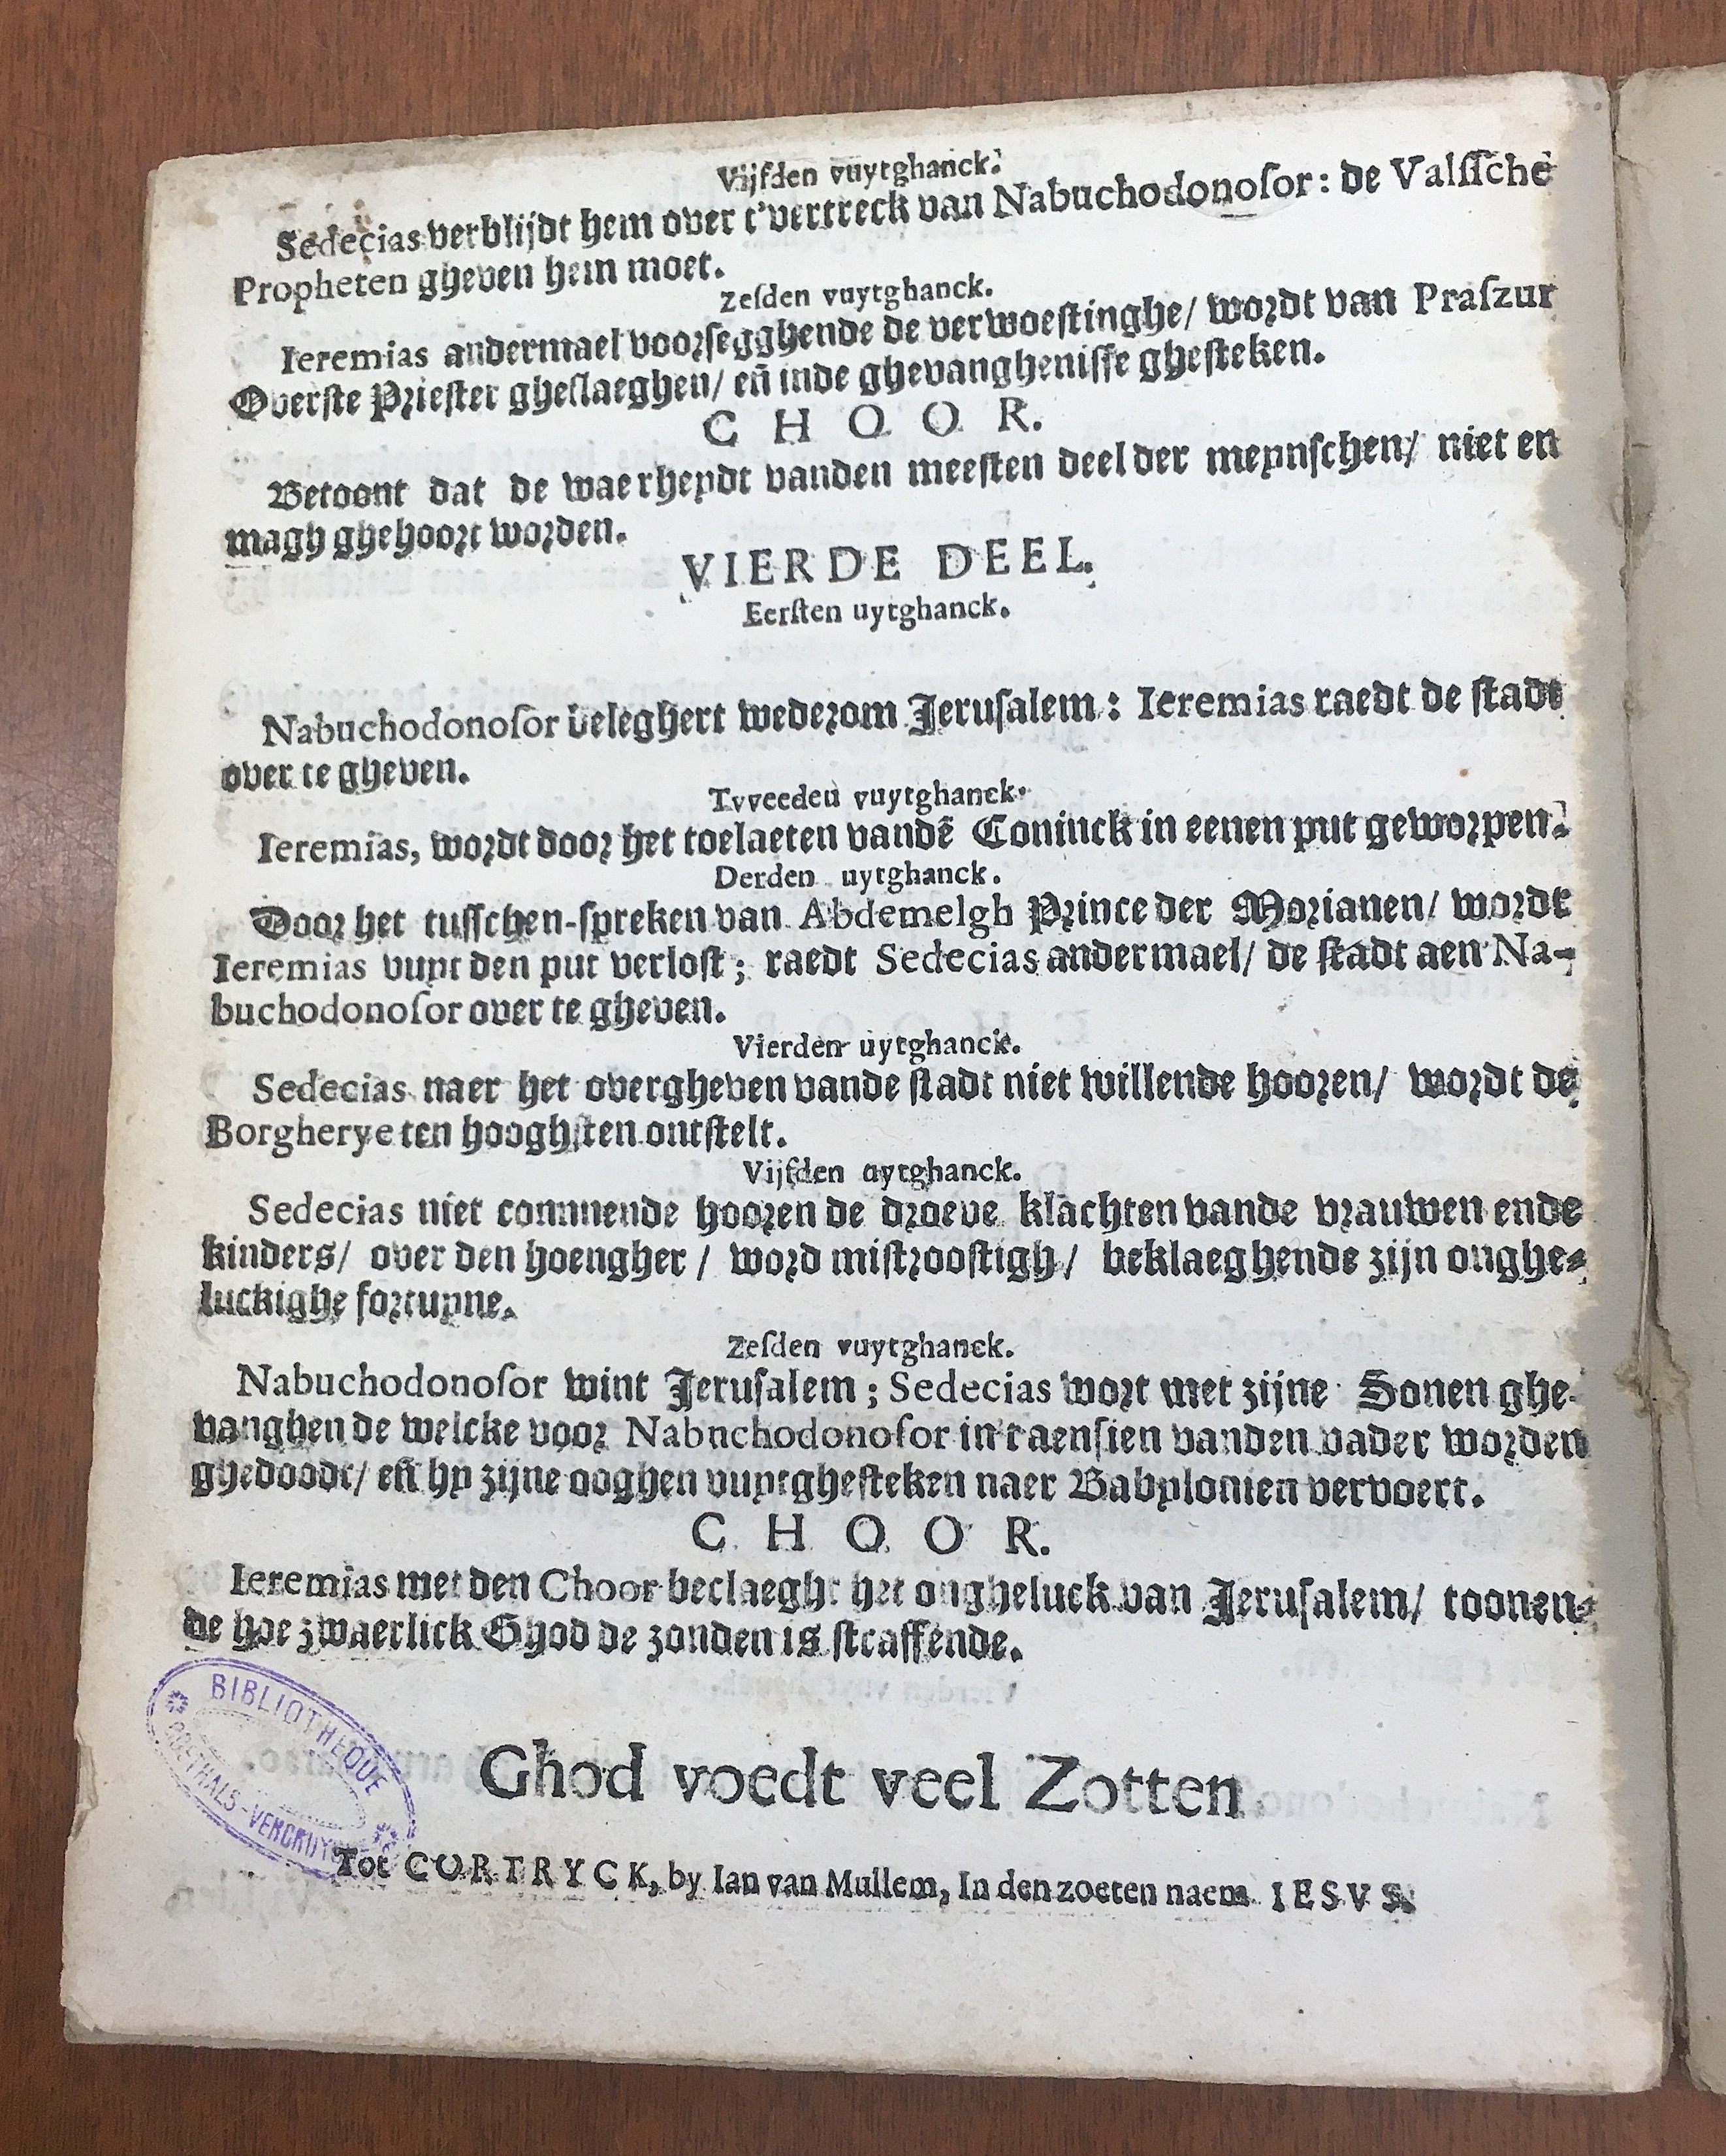 Vijfden vuytghanck.
Sedecias verblijdt hem over t'vertreck van Nabuchodonoſor: de Valſſche
Propheten gheven hem moet.
Zeſden vuytghanck.
Ieremias andermael voorſegghende de verwoeſtinghe/ wordt van Praſzur
Overſte Prieſter gheſlaeghen/ en̄ inde ghevangheniſſe gheſteken.
CHOOR.
Betoont dat de waerheydt vanden meeſten deel der meynſchen/ niet en
magh ghehoort worden.
VIERDE DEEL.
Eerſten uytghanck.
Nabuchodonoſor beleghert wederom Jeruſalem: Ieremias raedt de ſtadt
over te gheven.
Tvveeden vuytghanck.
Ieremias, wordt door het toelaeten vandē Coninck in eenen put geworpen.
Derden uytghanck.
Door het tuſſchen-ſpreken van Abdemelgh Prince der Morianen/ wordt
Ieremias vuyt den put verloſt; raedt Sedecias andermael/ de ſtadt aen Na-
buchodonoſor over te gheven.
Vierden uytghanck.
Sedecias naer het overgheven vande ſtadt niet willende hooren/ wordt de
Borgherye ten hooghſten ontſtelt.
Vijfden uytghanck.
Sedecias niet connnende hooren de droeve klachten vande vrauwen ende
kinders/ over den hoengher/ word miſtrooſtigh/ beklaeghende zijn onghe-
luckighe fortuyne.
Zeſden vuytghanck.
Nabuchodonoſor wint Jeruſalem; Sedecias wort met zijne Sonen ghe-
vanghen de welcke voor Nabnchodonoſor in't aenſien vanden vader worden
ghedoodt/ en̄ hy zijne ooghen vuytgheſteken naer Babylonien vervoert.
CHOOR.
Ieremias met den Choor beclaeght het ongheluck van Jeruſalem/ toonen-
de hoe zwaerlick Ghod de zonden is ſtraffende.
Ghod voedt veel Zotten
BIBLIOTHEQUE
GOETHALS-VERCRUYSSE
Tot CORTRYCK, by Ian van Mullem, In den zoeten naem IESVS.